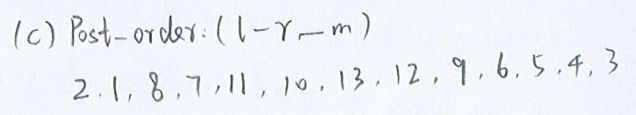 (c) Post-order: (l-r-m)
2.1, 8.7, 11, 10, 13, 12, 9.6.5.4.3